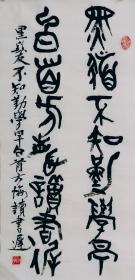 黑髮不知勤學早
白首方悔讀書遲
黑髮不知勤學早白首方悔讀書遲